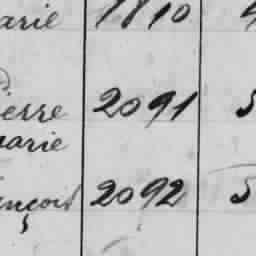 arie 1810
ierre 2091 5
arie
ançois 2092 5